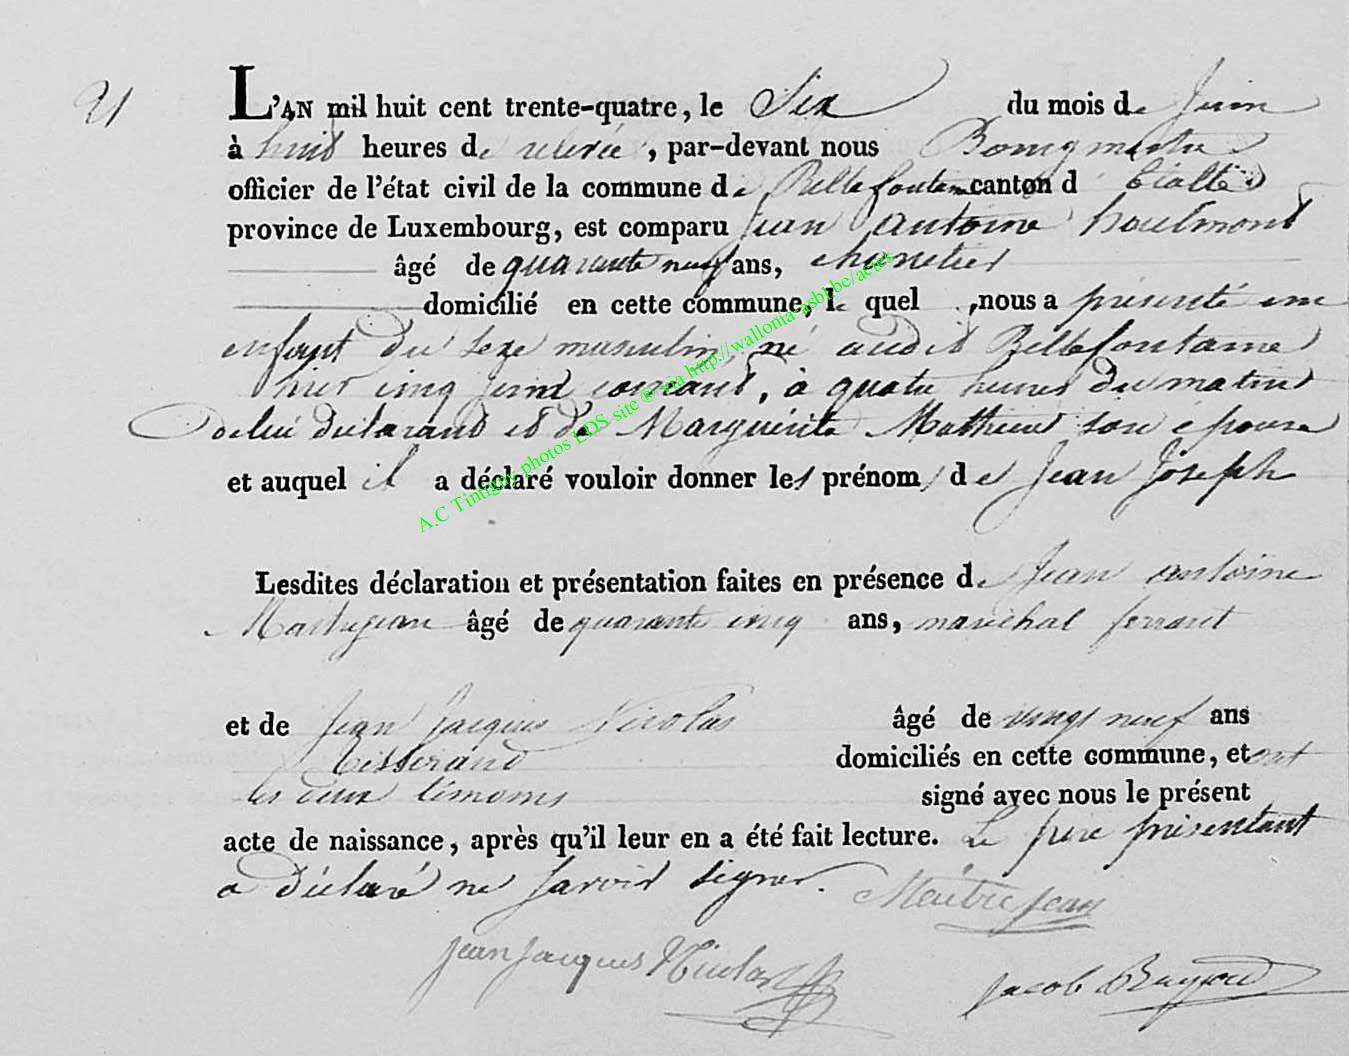 21
L'AN mil huit cent trente-quatre, le Six du mois de Juin
à huit heures de relevée, par-devant nous Bourgmestre
officier de l'état civil de la commune de Bellefontaine canton d'
province de Luxembourg, est comparu Jean antoine houlmont
âgé de quarante neuf ans,
domicilié en cette commune, le quel, nous a présenté un
enfant du sexe masculin, né audit Bellefontaine
hier cinq juin courant, à quatre heures du matin
de lui déclarant et de Marguerite Mathieu son épouse
et auquel il a déclaré vouloir donner les prénoms de Jean Joseph
Lesdites déclaration et présentation faites en présence de Jean antoine
âgé de quarante cinq ans, maréchal ferrant
et de Jean Jacques Nicolas âgé de vingt neuf ans
tisserand domiciliés en cette commune, et ont
les deux témoins signé avec nous le présent
acte de naissance, après qu'il leur en a été fait lecture. Le père présentant
a déclaré ne savoir signer. Maitrejean
Jean Jacques Nicolas Jacob
A.C Tintigny photos LDS site ® via http://wallonia-asbl.be/actes